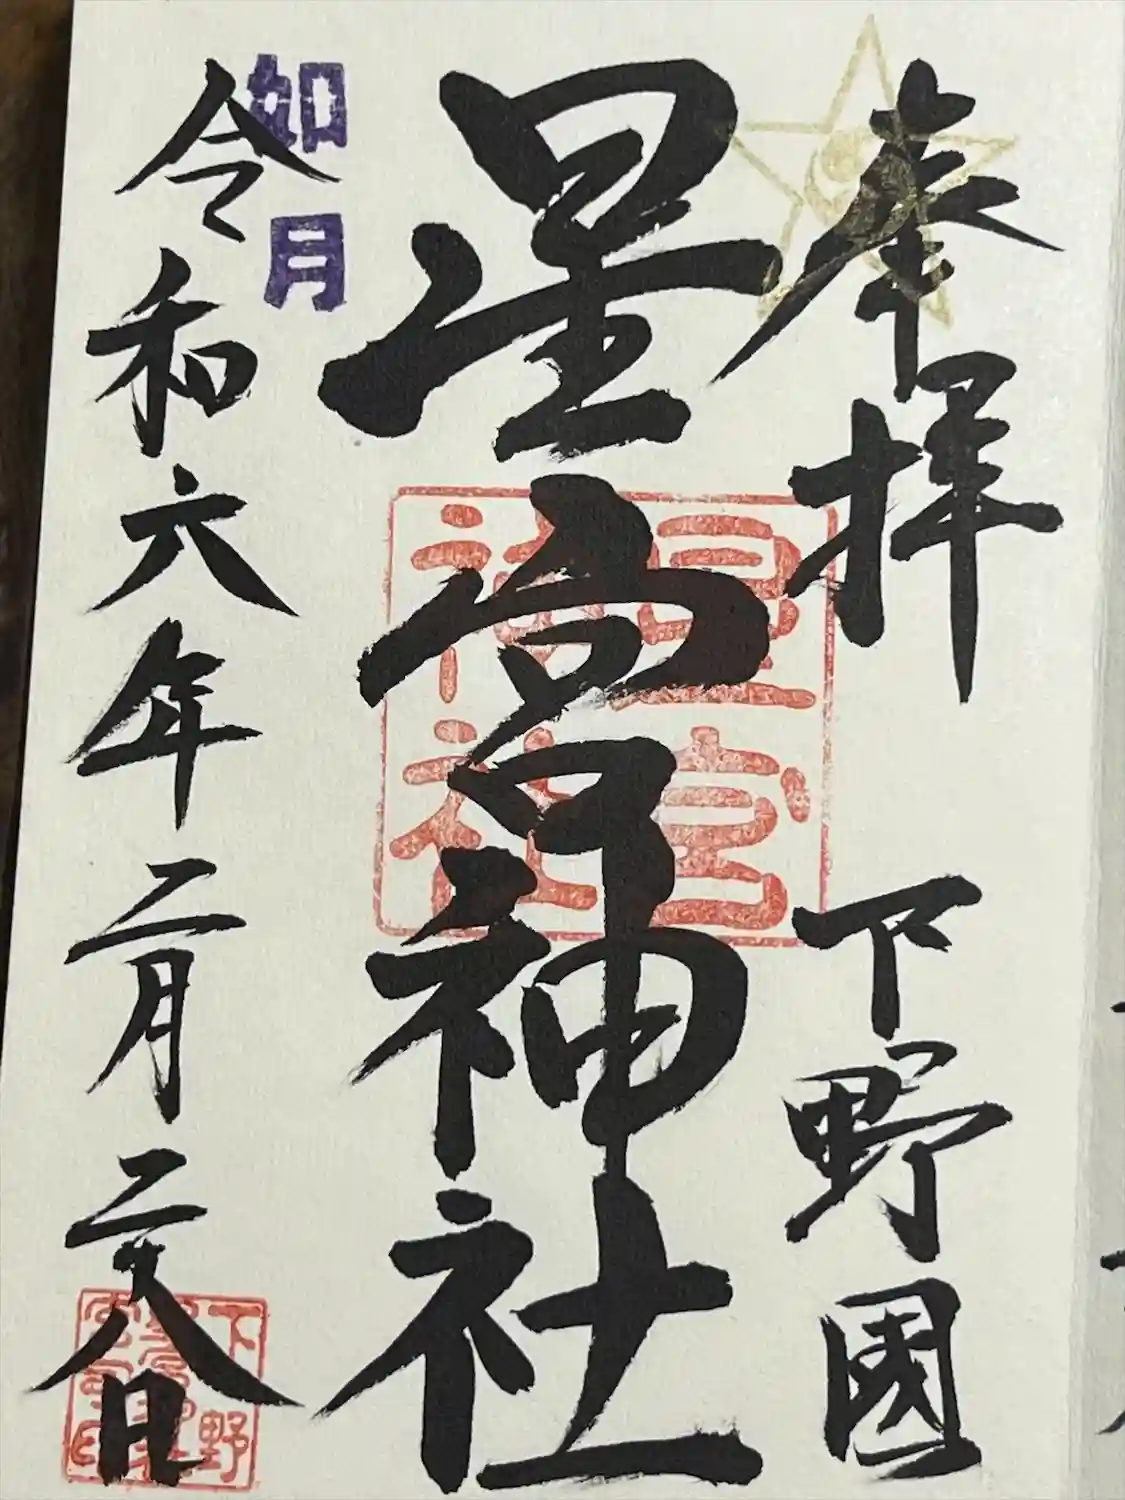 奉拝
下野國
星宮神社
星宮
神社
如月
令和六年二月二十八日
下野